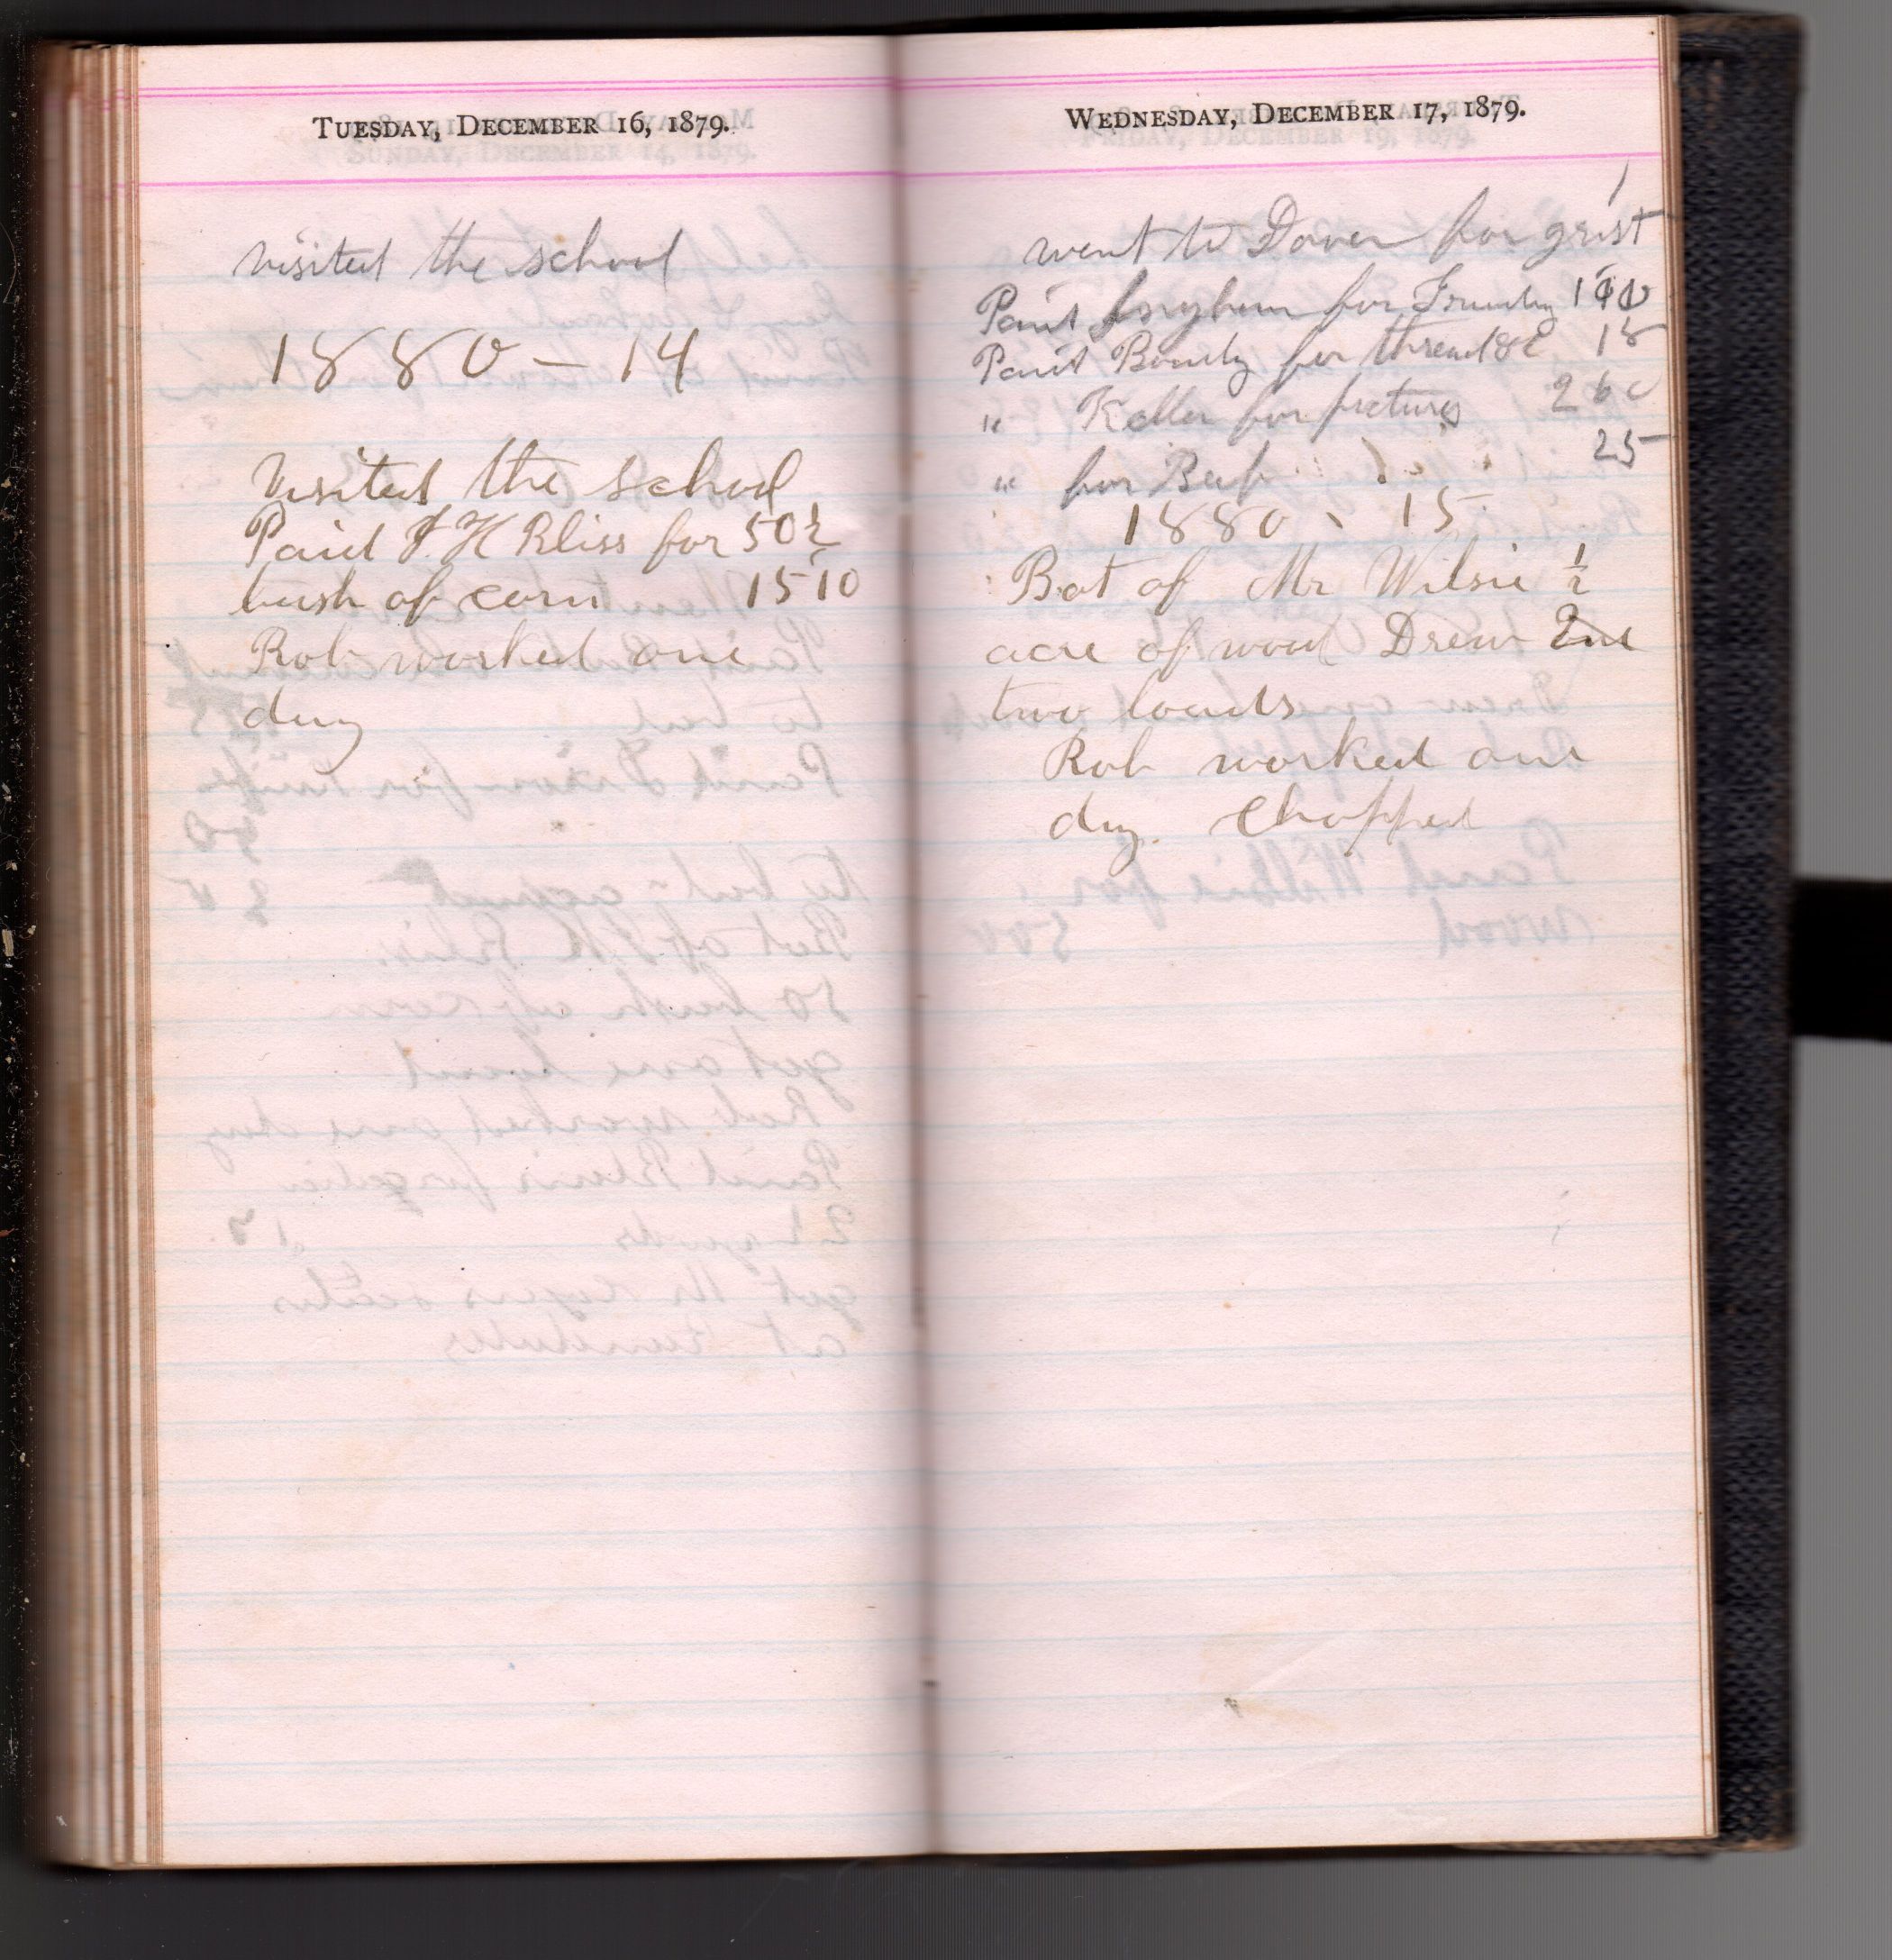 TUESDAY, DECEMBER 16, 1879.
visited the school
1880 – 14
Visited the school
Paid J. H Bliss for 50½
bush of corn 15 10
Rob worked one
day
WEDNESDAY, DECEMBER 17, 1879.
went to Dover for grist
Paid for
Paid Bondy for thread &c 15
" Keller for pictures 2 60
" for Beef 25
1880 - 15
Bot of Mr Wilsie ½
acre of wood Drew
two loads
Rob worked one
day. Chopped